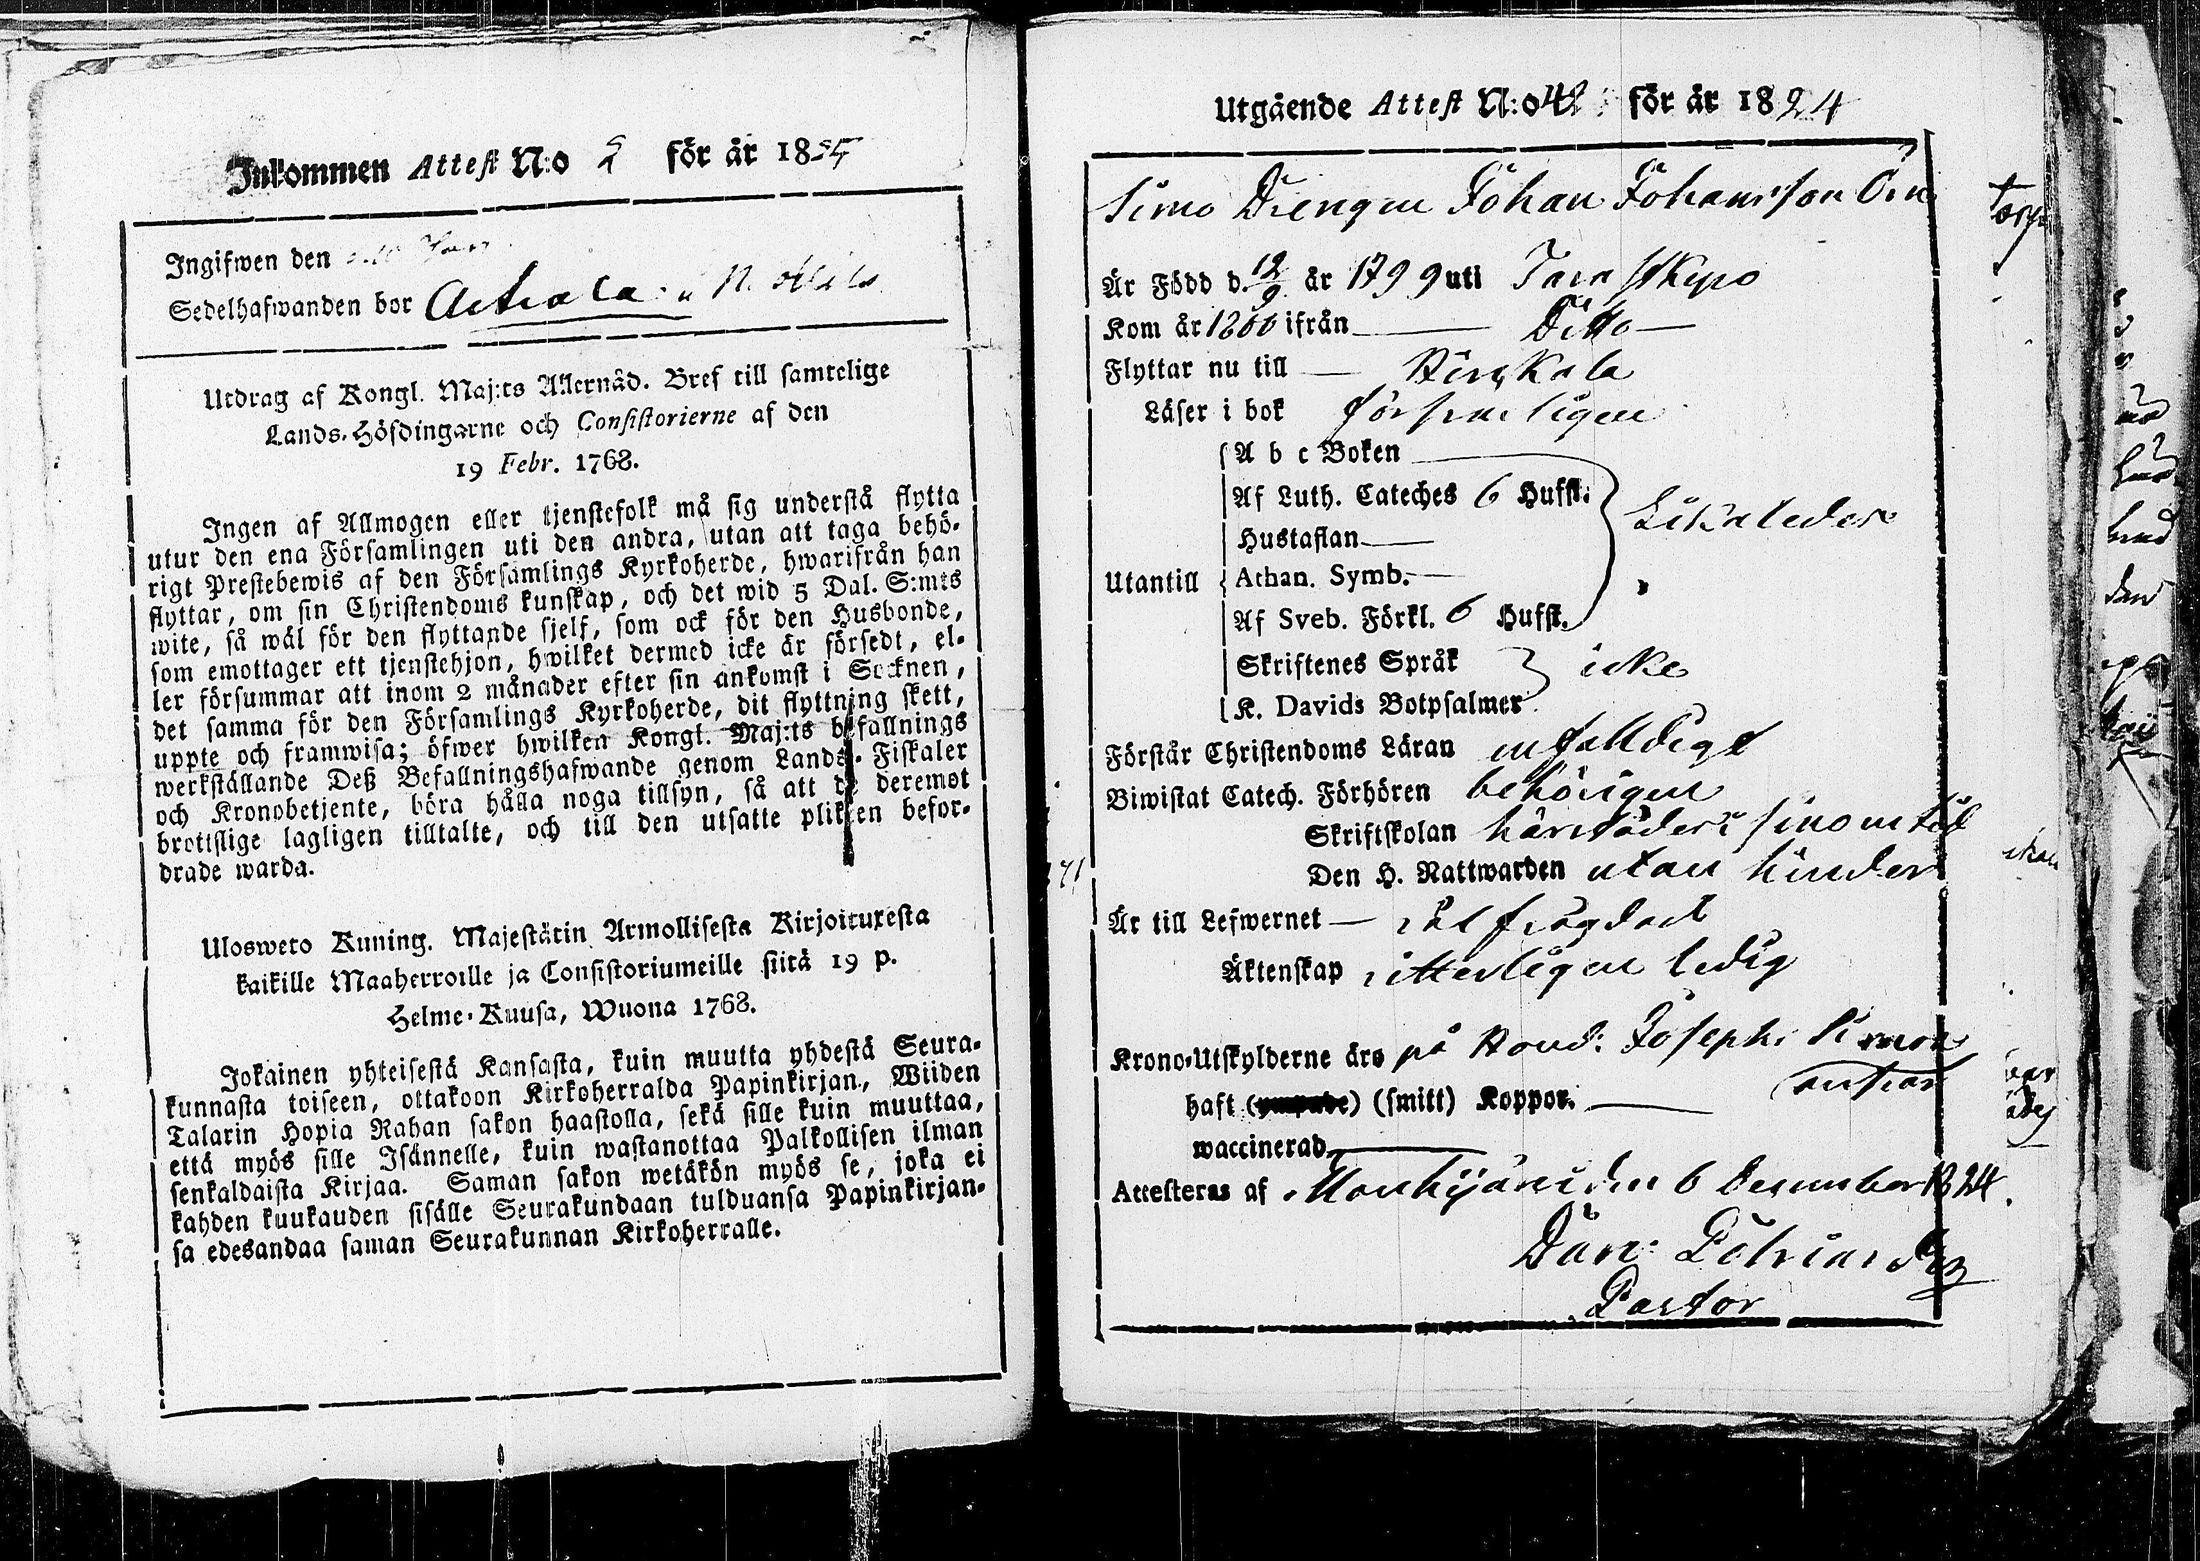 Inkommen Attest N:o 2 för år 1825
Ingifwen den
Sedelhafwanden bor
Utdrag af Kongl. Maj:ts Allernåd. Bref till samtelige
Lands-Höfdingarne och Consistorierne af den
19 Febr. 1768.
Ingen af Allmogen eller tjenstefolk må sig understå flytta
utur den ena Församlingen uti den andra, utan att taga behö-
rigt Prestebewis af den Församlings Kyrkoherde, hwarifrån han
flyttar, om sin Christendoms kunskap, och det wid 5 Dal. S:mts
wite, så wäl för den flyttande sjelf, som ock för den Husbonde,
som emottager ett tjenstehjon, hwilket dermed icke är försedt, el-
ler försummar att inom 2 månader efter sin ankomst i Socknen,
det samma för den Församlings Kyrkoherde, dit flyttning skett,
uppte och framwisa; öfwer hwilken Kongl. Maj:ts befallnings
werkställande Deß Befallningshafwande genom Lands-Fiskaler
och Kronobetjente, böra hålla noga tillsyn, så att de deremot
brottslige lagligen tilltalte, och till den utsatte plikten befor-
drade warda.
Ulosweto Kuning. Majestätin Armollisesta Kirjoituxesta
kaikille Maaherroille ja Consistoriumeille siitä 19 p.
Helme-Kuusa, Wuona 1768.
Jokainen yhteisestä Kansasta, kuin muutta yhdestä Seura-
kunnasta toiseen, ottakoon Kirkoherralda Papinkirjan, Wiiden
Talarin Hopia Rahan sakon haastolla, sekä sille kuin muuttaa,
että myös sille Isännelle, kuin wastanottaa Palkollisen ilman
senkaldaista Kirjaa. Saman sakon wetäkön myös se, joka ei
kahden kuukauden sisälle Seurakundaan tulduansa Papinkirjan-
sa edesandaa saman Seurakunnan Kirkoherralle.
Utgående Attest N:o 42 för år 1824
Drengen Johan Johansson
Är Född d. 12/9 år 1799 uti
Kom år 1800 ifrån — Ditto —
Flyttar nu till —
Läser i bok försvarligen
A b c Boken
Af Luth. Cateches 6 Hufst.
Hustaflan —
Utantill Athan. Symb. —
Af Sveb. Förkl. 6 Hufst.
Likaledes
Skriftenes Språk
icke
K. Davids Botpsalmer
Förstår Christendoms Läran enfalldigt
Biwistat Catech. Förhören behörigen
Skriftskolan härstädes i sinom tid
Den H. Nattwarden utan hinder
Är till Lefwernet — välfrägdad
Äktenskap ledig
Krono-Utskylderne äro på
haft (ympade) (smitt) Koppor. —
waccinerad —
Attesteras af den 6 December 1824.
Pastor